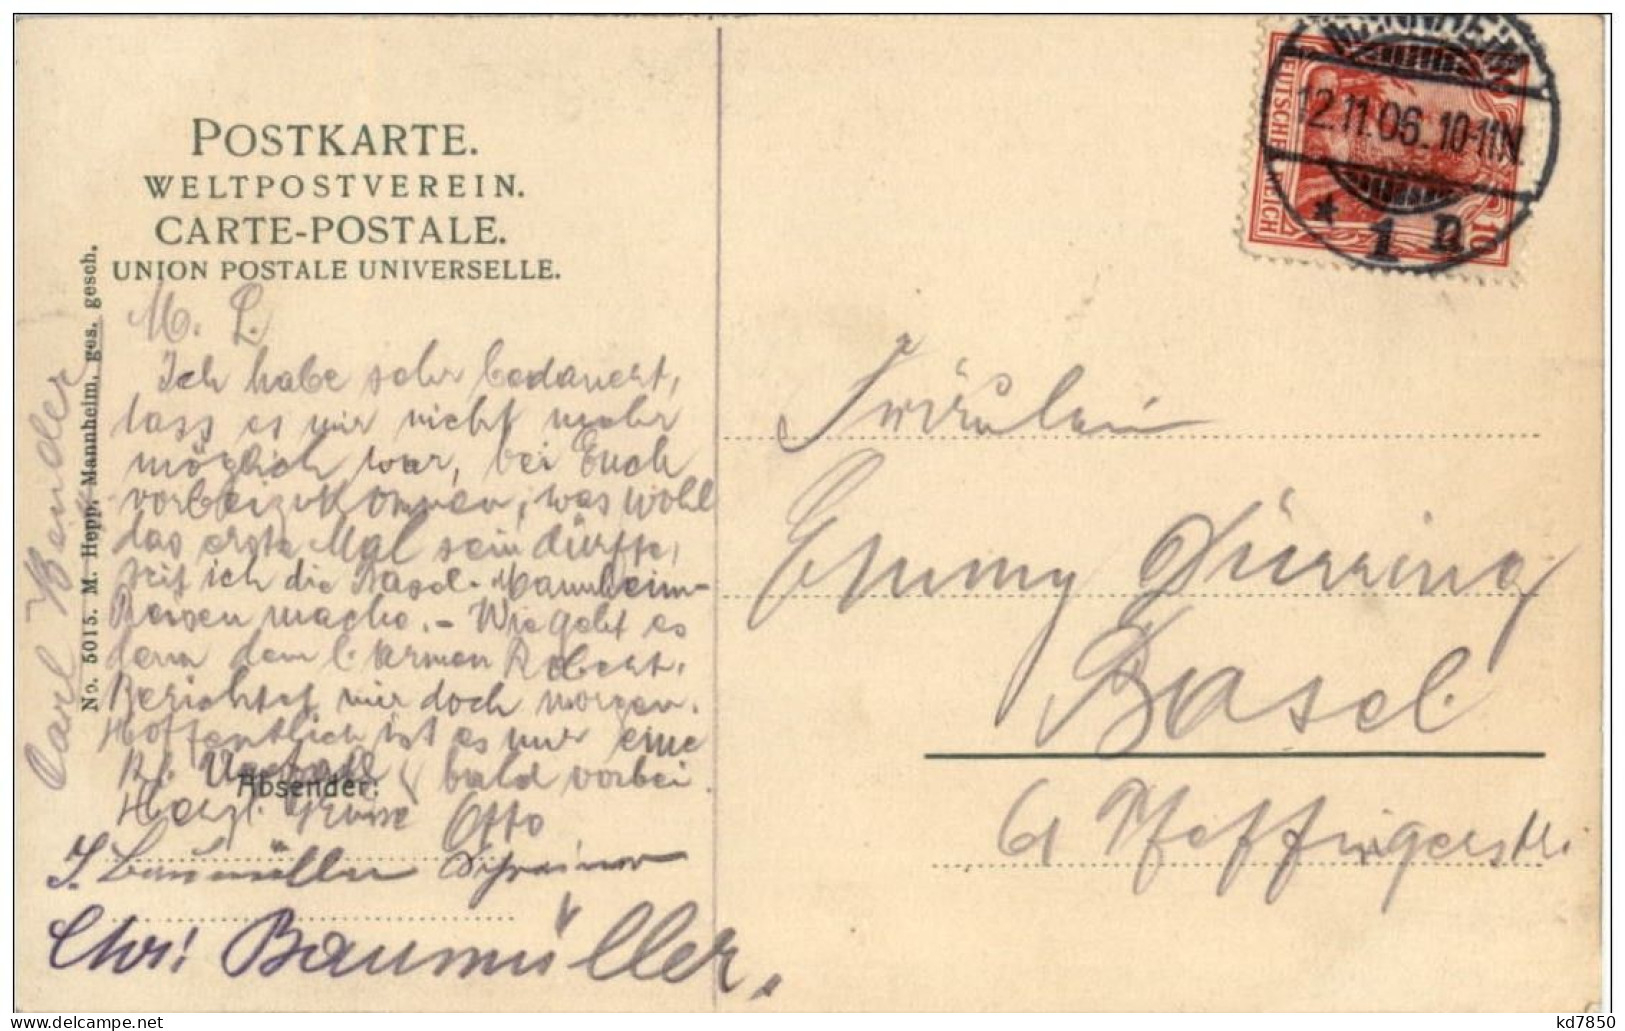 POSTKARTE.
WELTPOSTVEREIN.
CARTE-POSTALE.
UNION POSTALE UNIVERSELLE.
No. 5015. M. Hepp, Mannheim, ges. gesch.
Carl Bender
M. L.
Ich habe sehr bedauert,
dass es mir nicht mehr
möglich war, bei Euch
vorbeizukommen, was wohl
das erste Mal sein dürfte,
seit ich die Basel-Mannheim-
Reisen mache. - Wie geht es
denn dem l. armen Robert.
Berichtet mir doch morgen.
Hoffentlich ist es nur eine
bald vorbei.
Absender:
Herzl. Grüsse Otto
J. Baumüller Schreiner
Chr. Baumüller.
MANNHEIM
12.11.06. 10-11N.
* 1 n
DEUTSCHES REICH
10
Fräulein
Emmy Dürring
Basel
61 Pfeffingerstr.
kd7850